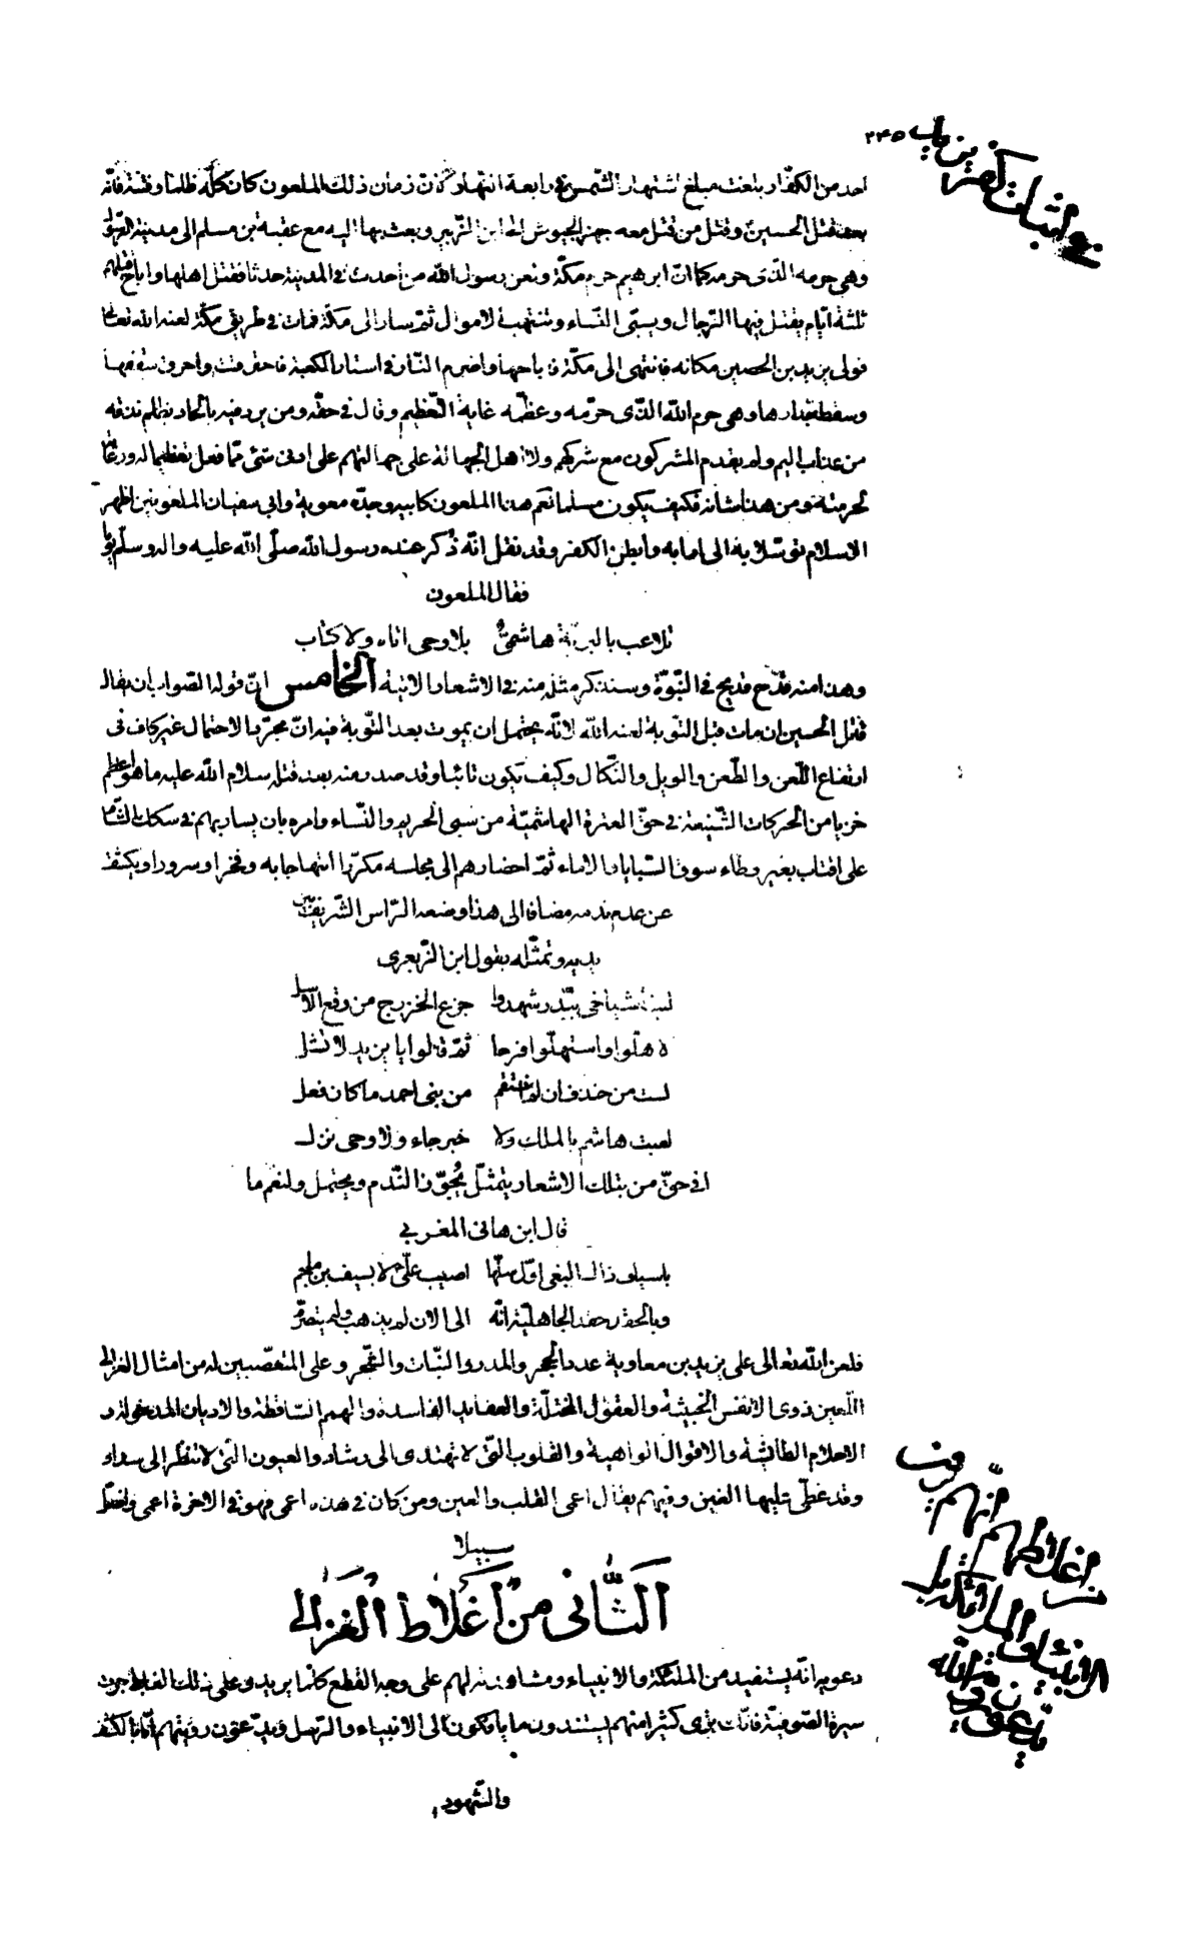 ٢٤٥
في اثبات كفر يزيد
احد من الكفّار بلغت مبلغ اشتهار الشّمس في رابعة النّهار كان زمان ذلك الملعون كان كلّه ظلما وفتنة فانّه
بعد قتل الحسين وقتل من قتل معه جهز الجيوش الى ابن الزّبير وبعث بها اليه مع عقبة بن مسلم الى مدينة الرّسول
وهي حرمه الّذى حرمه كما انّ ابرهيم حرم مكّة ولعن رسول اللّه من احدث في المدينة حدثا فقتل اهلها واباح قتلهم
ثلثة ايّام يقتل فيها الرّجال ويسبى النّساء وينتهب الاموال ثمّ سار الى مكّة فمات في طريق مكّة لعنه اللّه تعالى
فولى يزيد بن الحصين مكانه فانتهى الى مكّة فاباحها واضرم النّار في استار الكعبة فاحترقت واحرق سقفها
وسقط جدارها وهي حرم اللّه الّذى حرّمه وعظّمه غاية التّعظيم وقال في حقّه ومن يرد فيه بالحاد بظلم نذقه
من عذاب اليم ولم يقدم المشركون مع شركهم ولا اهل الجهالة على جهالتهم على ادنى شئ ممّا فعل تعظيما له ورعاية
لحرمته ومن هذا شانه فكيف يكون مسلما نعم هذا الملعون كابيه وجدّه معوية وابي سفيان الملعونين اظهر
الاسلام توسّلا به الى امابه وابطن الكفر وقد نقل انّه ذكر عنده رسول اللّه صلّى اللّه عليه واله وسلّم يوما
فقال الملعون
تلاعب بالبريّة هاشمىّ بلا وحى اتاه ولا كتاب
وهذا منه قدح قديم في النّبوّة وسنذكر مثله منه في الاشعار الاتية الخامس انّ قوله الصّواب ان يقال
قتل الحسين ان مات قبل التّوبة لعنه اللّه لانّه يحتمل ان يموت بعد التّوبة فيه انّ مجرّد الاحتمال غير كاف في
ارتفاع اللّعن والطّعن والويل والنّكال وكيف يكون تائبا وقد صدر منه بعد قتله سلام اللّه عليه ما هو اعظم
خزيا من الحركات الشّنيعة في حقّ العترة الهاشميّة من سبى الحريم والنّساء وامره بان يسار بهم في سكك الشّام
على اقتاب بغير وطاء سوق السّبايا والاماء ثمّ احضارهم الى مجلسه مكرّرا ابتهاجا به وفخرا وسرورا ويكشف
عن عدم ندمه مضافا الى هذا وضعه الرّاس الشّريف بين
يديه وتمثّله بقول ابن الزّبعرى
ليت اشياخى ببدر شهدوا جزع الخزرج من وقع الاسل
لاهلّوا واستهلّوا فرحا ثمّ قالوا يا يزيد لا تشل
لست من خندف ان لم انتقم من بنى احمد ما كان فعل
لعبت هاشم بالملك ولا خبر جاء ولا وحى نزل
افي حقّ من بتلك الاشعار يتمثّل يجوّز النّدم ويحتمل ولنعم ما
قال ابن هانى المغربي
باسياف ذاك البغى اوّل سلّها اصيب علىّ لا بسيف بن ملجم
وبالحقد حقد الجاهليّة انّه الى الان لم يذهب ولم يتصرّم
فلعن اللّه تعالى على يزيد بن معاوية عدد الحجر والمدر والنّبات والشّجر وعلى المتعصّبين له من امثال الغزالى
اللّعين ذوى الانفس الخبيثة والعقول المختلّة والعقايد الفاسدة والهمم السّاقطة والاديان المدخولة و
الاحلام الطّائشة والاقوال الواهية والقلوب الّتى لا تهتدى الى رشاد والعيون الّتى لا تنظر الى سداد
وقد غطّى عليها الغين وفيهم يقال اعمى القلب والعين ومن كان في هذه اعمى فهو في الاخرة اعمى واضلّ
سبيلا
الثّانى من اغلاط الغزالى
دعويه انّه يستفيد من الملئكة والانبياء ومشاهدته لهم على وجه القطع كانما يريد وعلى ذلك الغلط جرت
سيرة الصّوفيّة فانّك ترى كثيرا منهم يسندون ما يأفكون الى الانبياء والرّسل ويدّعون رؤيتهم ايّاها بالكشف
والشّهود
من اغلاطهم انّهم
الانبياء والملائكة بل
يدّعون رؤية اللّه